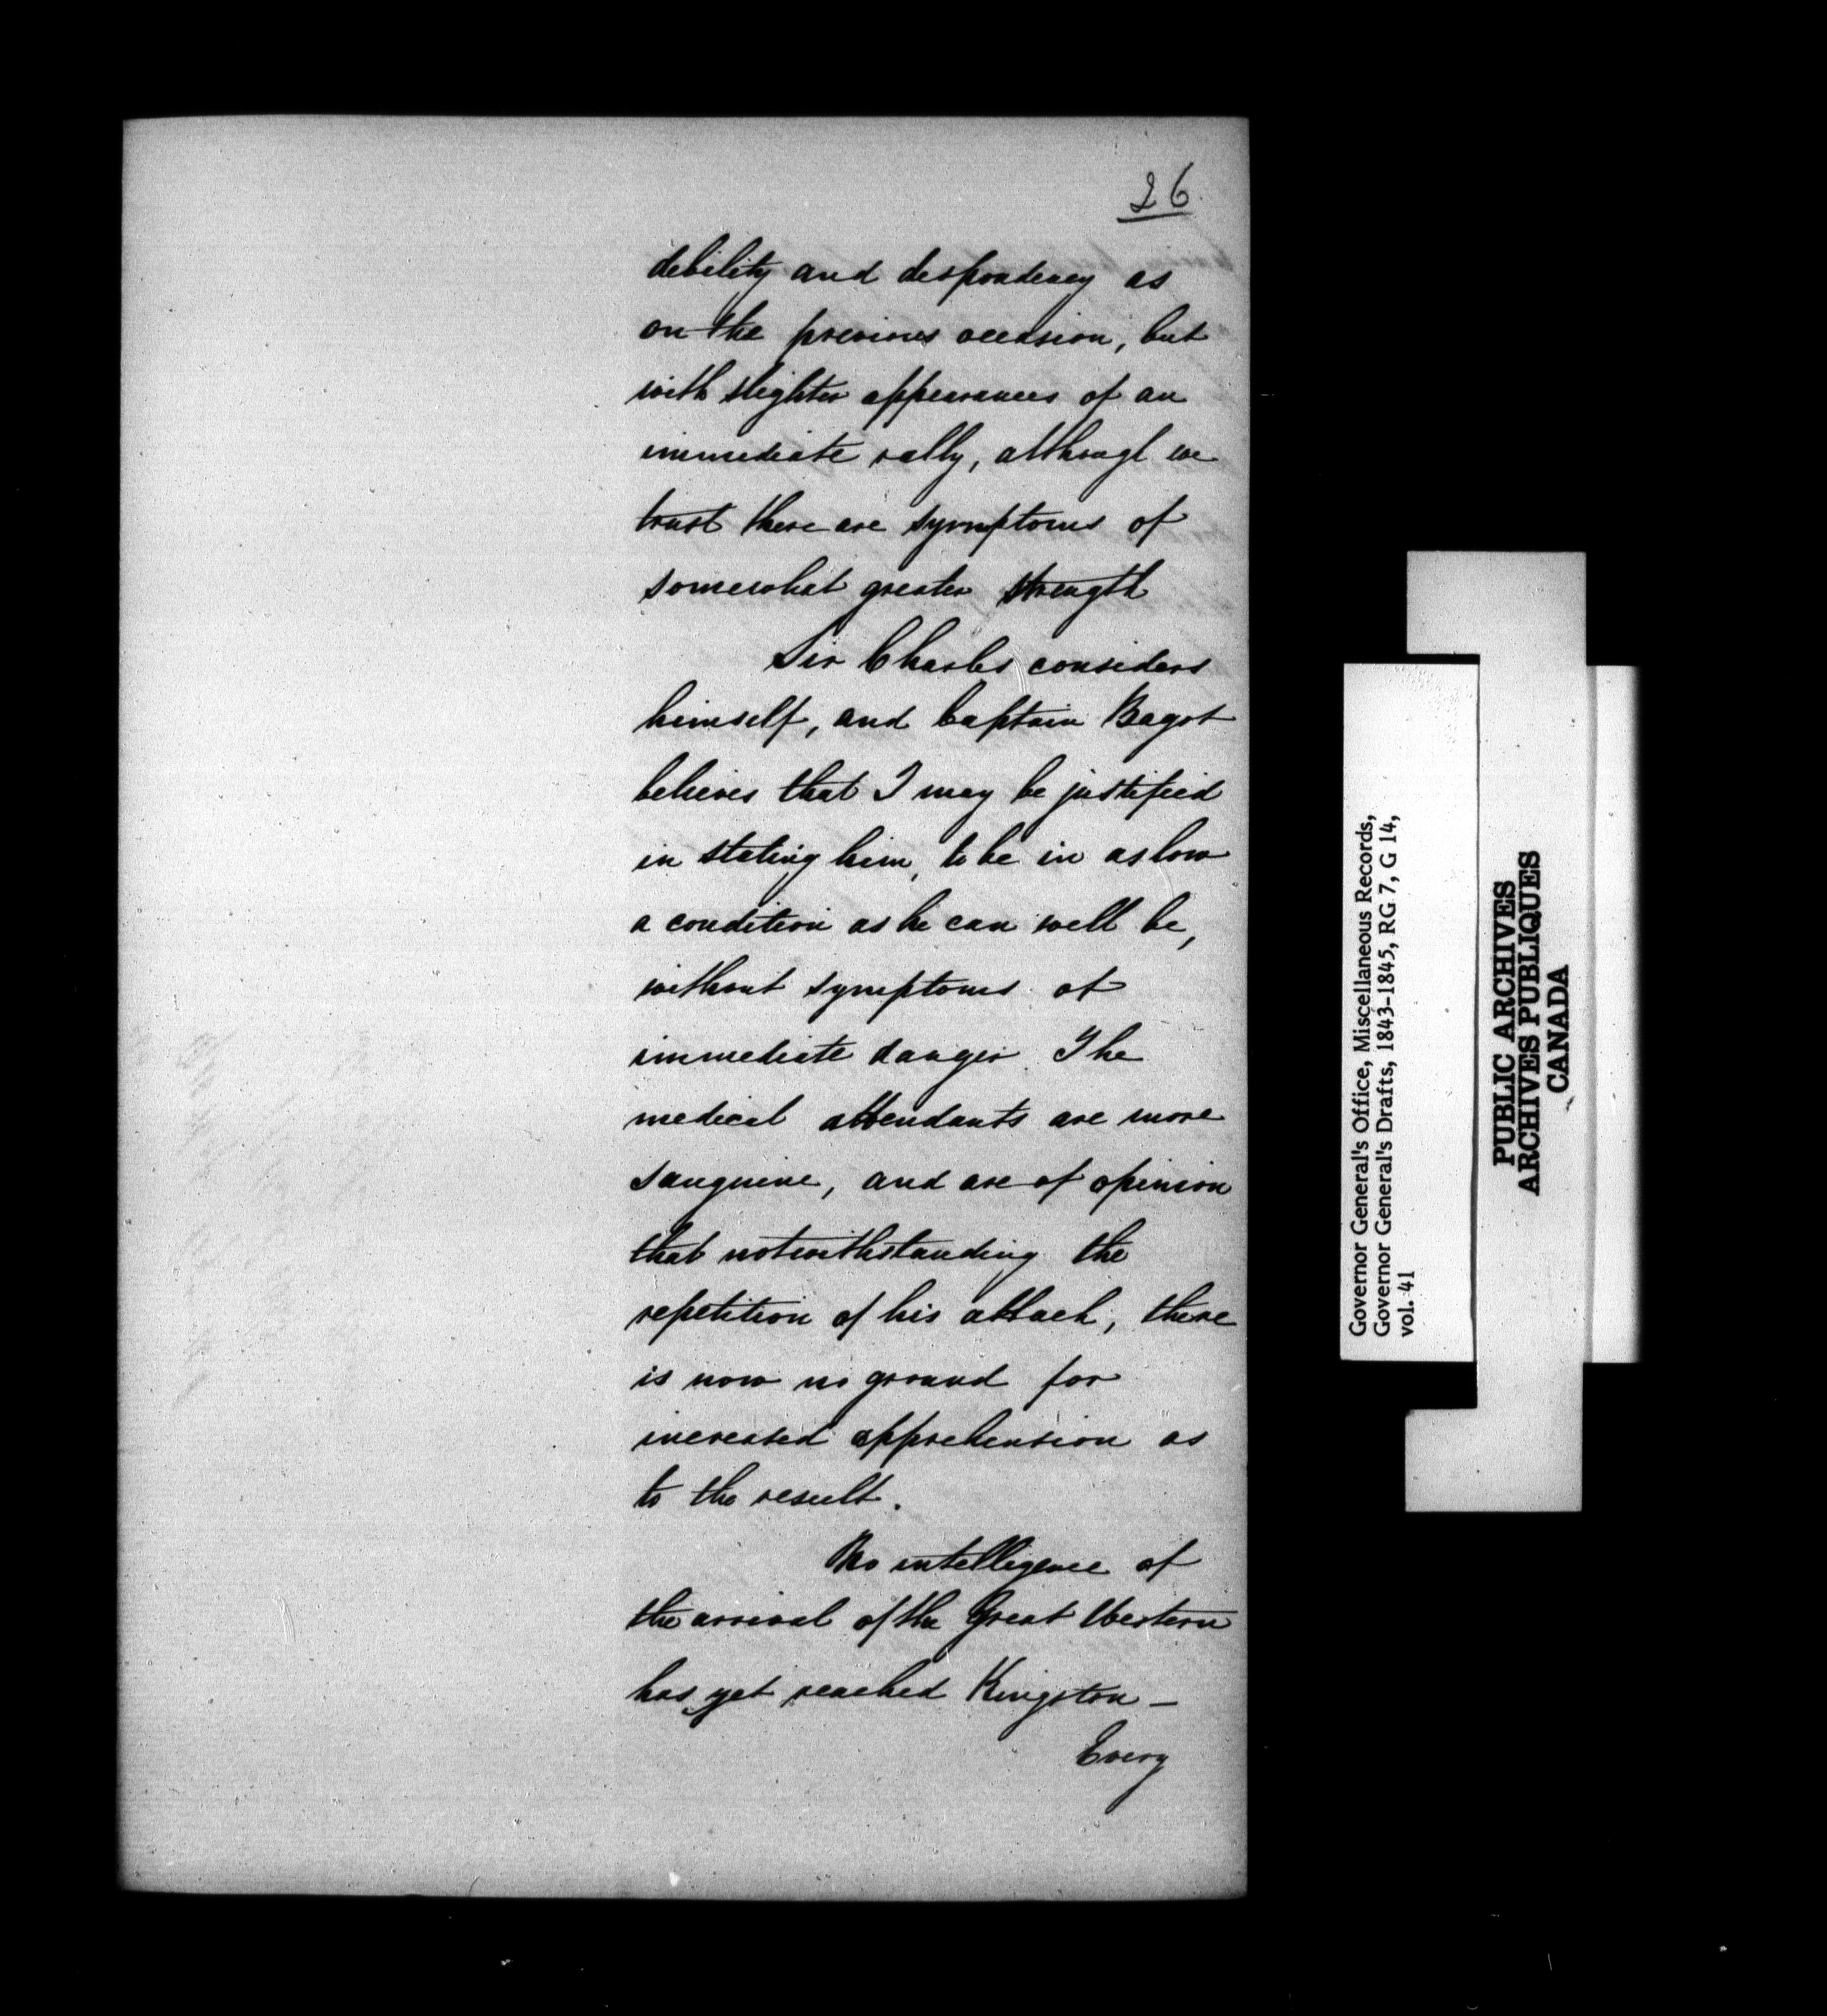 26
debility and despondency as
on the previous occasion, but
with slighter appearances of an
immediate rally, although we
trust there are symptoms of
somewhat greater strength
Sir Charles considers
himself, and Captain Bagot
believes that I may be justified
in stating him, to be in as low
a condition as he can well be,
without symptoms of
immediate danger. The
medical attendants are more
sanguine, and are of opinion
that notwithstanding the
repetition of his attack, there
is now no ground for
increased apprehension as
to the result.
No intelligence of
the arrival of the Great Western
has yet reached Kingston –
Every
Governor General's Office, Miscellaneous Records,
Governor General's Drafts, 1843-1845, RG 7, G 14,
vol. 41
PUBLIC ARCHIVES
ARCHIVES PUBLIQUES
CANADA